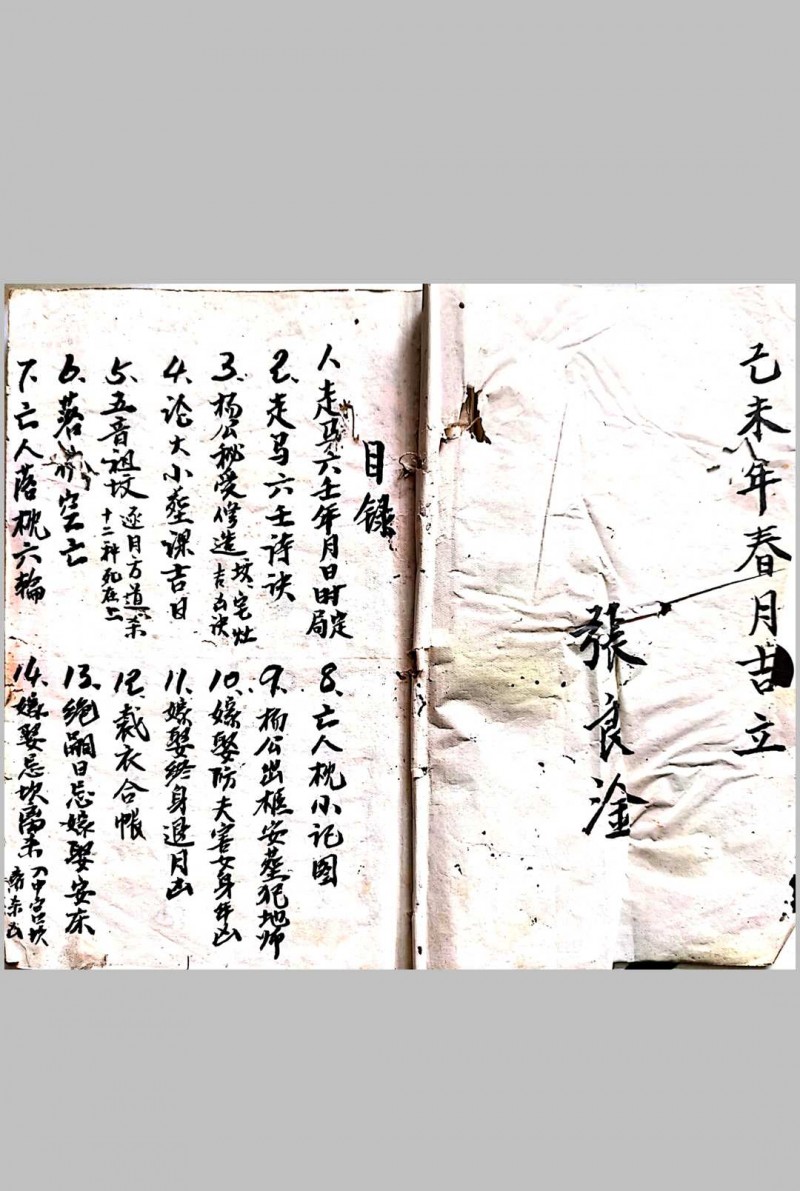 己未年春月吉立
張良淦
目録
1、走马六壬年月日时定局
2、走马六壬诗诀
3、杨公秘受修造坟、宅灶吉凶诀
4、论大小塟课吉日
5、五音祖坟逐月方道杀
十二种死在上
6、落 空亡
7、亡人落枕六輪
8、亡人枕小记图
9、杨公出樵安塟犯地师
10、嫁娶防夫害女身年凶
11、嫁娶终身退月凶
12、裁衣合帳
13、绝嗣日忌嫁娶安床
14、嫁娶忌坎离杀